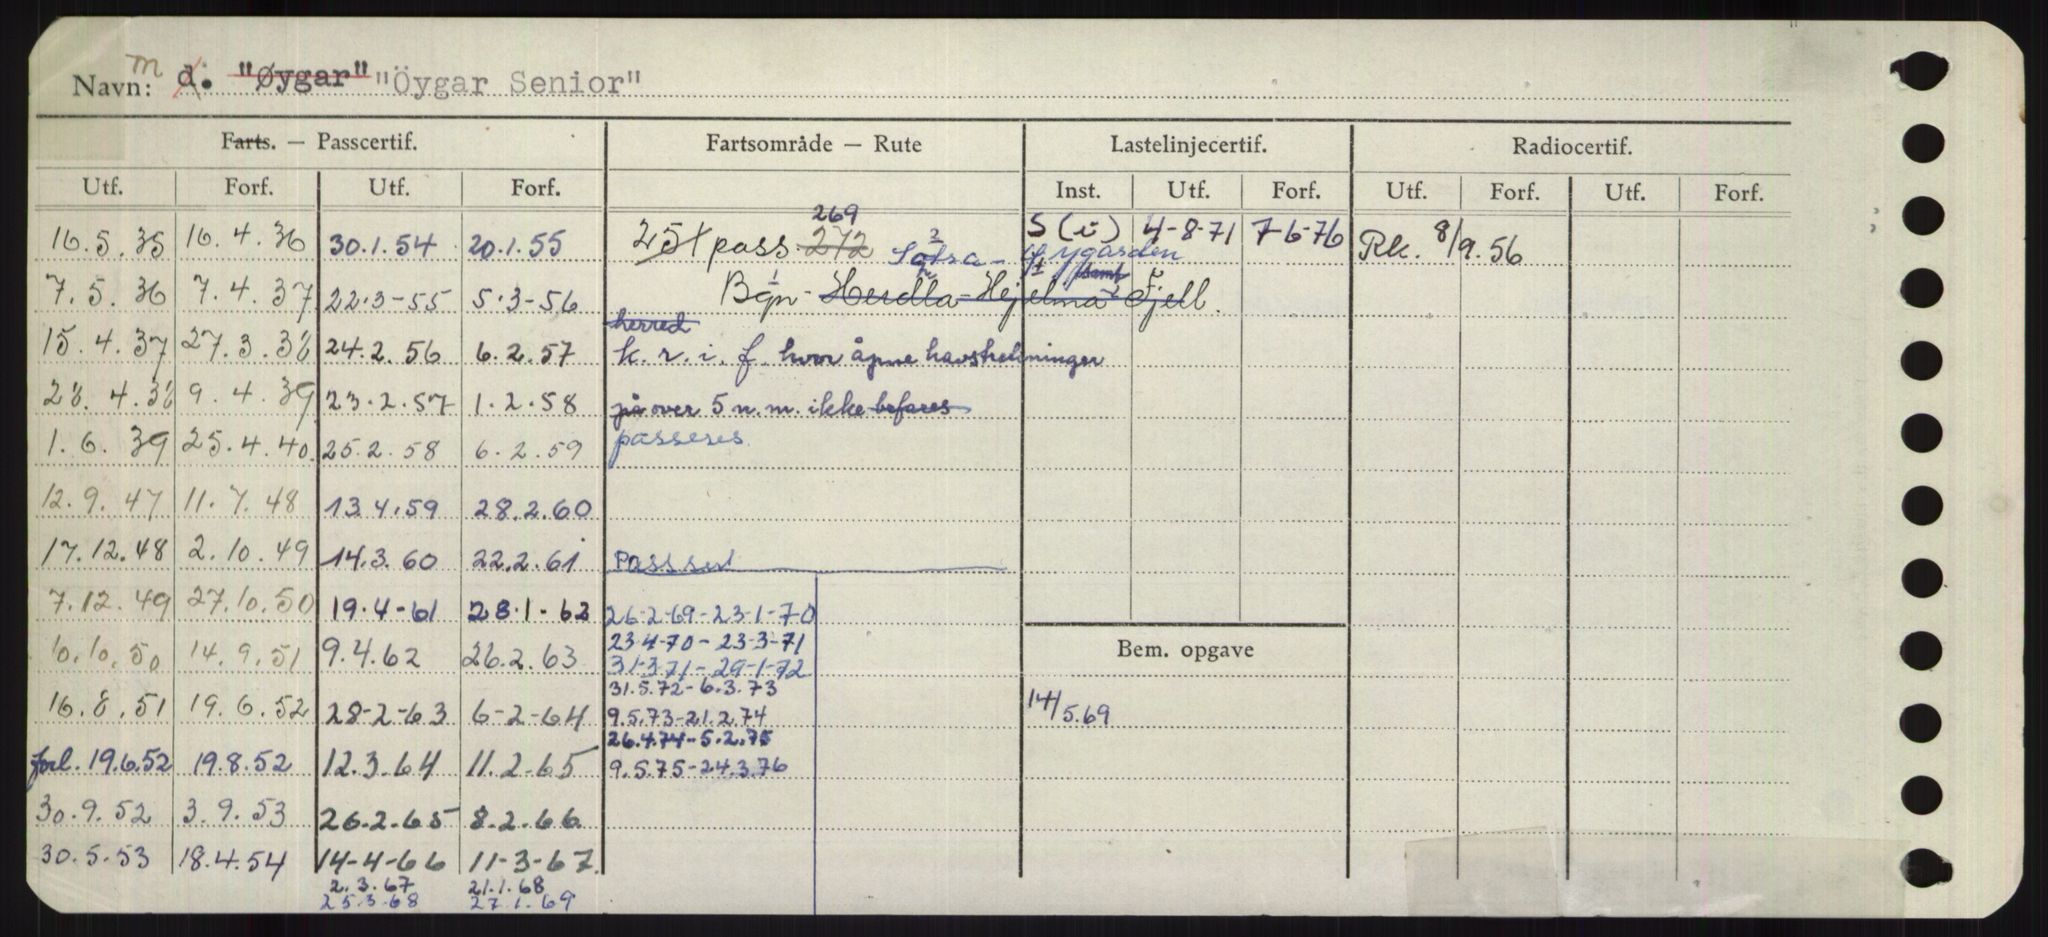 Navn: m d. "Øygar" "Öygar Senior"
Farts. — Passcertif. Fartsområde — Rute Lastelinjecertif. Radiocertif.
Utf. Forf. Utf. Forf. Inst. Utf. Forf. Utf. Forf. Utf. Forf.
269
16.5.35 16.4.36 30.1.54 20.1.55 pass 272 S (i) 4-8-71 7-6-76 Rk. 8/9.56
Sotra - Øygarden
samt
7.5.36 7.4.37 22.3-55 5.3-56 Bgn - Herdla - Hjelma Fjell.
herred
15.4.37 27.3.38 24.2.56 6.2.57 k. r. i. f. hvor åpne havstrekninger
28.4.38 9.4.39 23.2.57 1.2.58 på over 5 n.m. ikke befares
1.6.39 25.4.40. 25.2.58 6.2.59 passeres.
12.9.47 11.7.48 13.4.59 28.2.60
17.12.48 2.10.49 14.3.60 22.2.61 Pass sert
7.12.49 27.10.50 19.4-61 28.1-62 26-2-69-23-1-70
23-4-70 - 23-3-71
10.10.50 14.9.51 9.4.62 26.2.63 31-3.71 - 29-1-72 Bem. opgave
31.5.72-6.3.73
16.8.51 19.6.52 28-2-63 6-2-64 9.5.73-21.2.74 14/5.69
26.4.74-5.2.75
forl. 19.6.52 19.8.52 12.3.64 11.2-65 9.5.75-24.3.76
30.9.52 3.9.53 26.2.65 8.2.66
30.5.53 18.4.54 14-4-66 11-3-67.
2.3.67 21.1.68
25.3.68 27.1.69